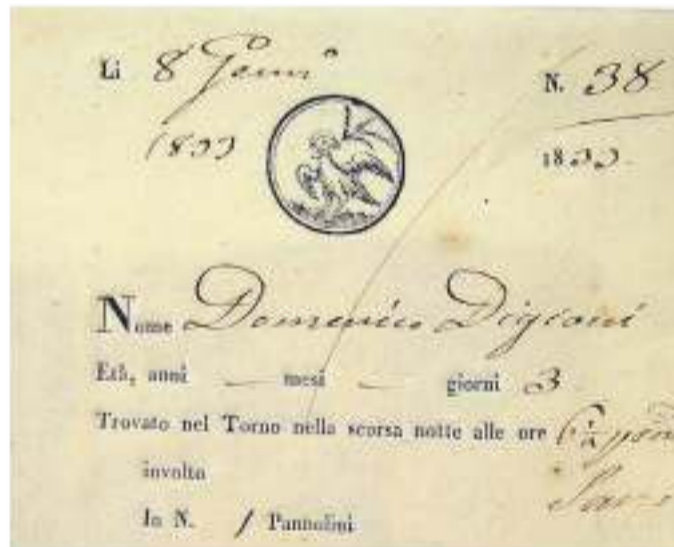 Li 8 Genn.º N. 38
1833 1833.
Nome Domenico Digioni
Età, anni — mesi — giorni 3
Trovato nel Torno nella scorsa notte alle ore 6 ½
involto
In N. 1 Pannolini